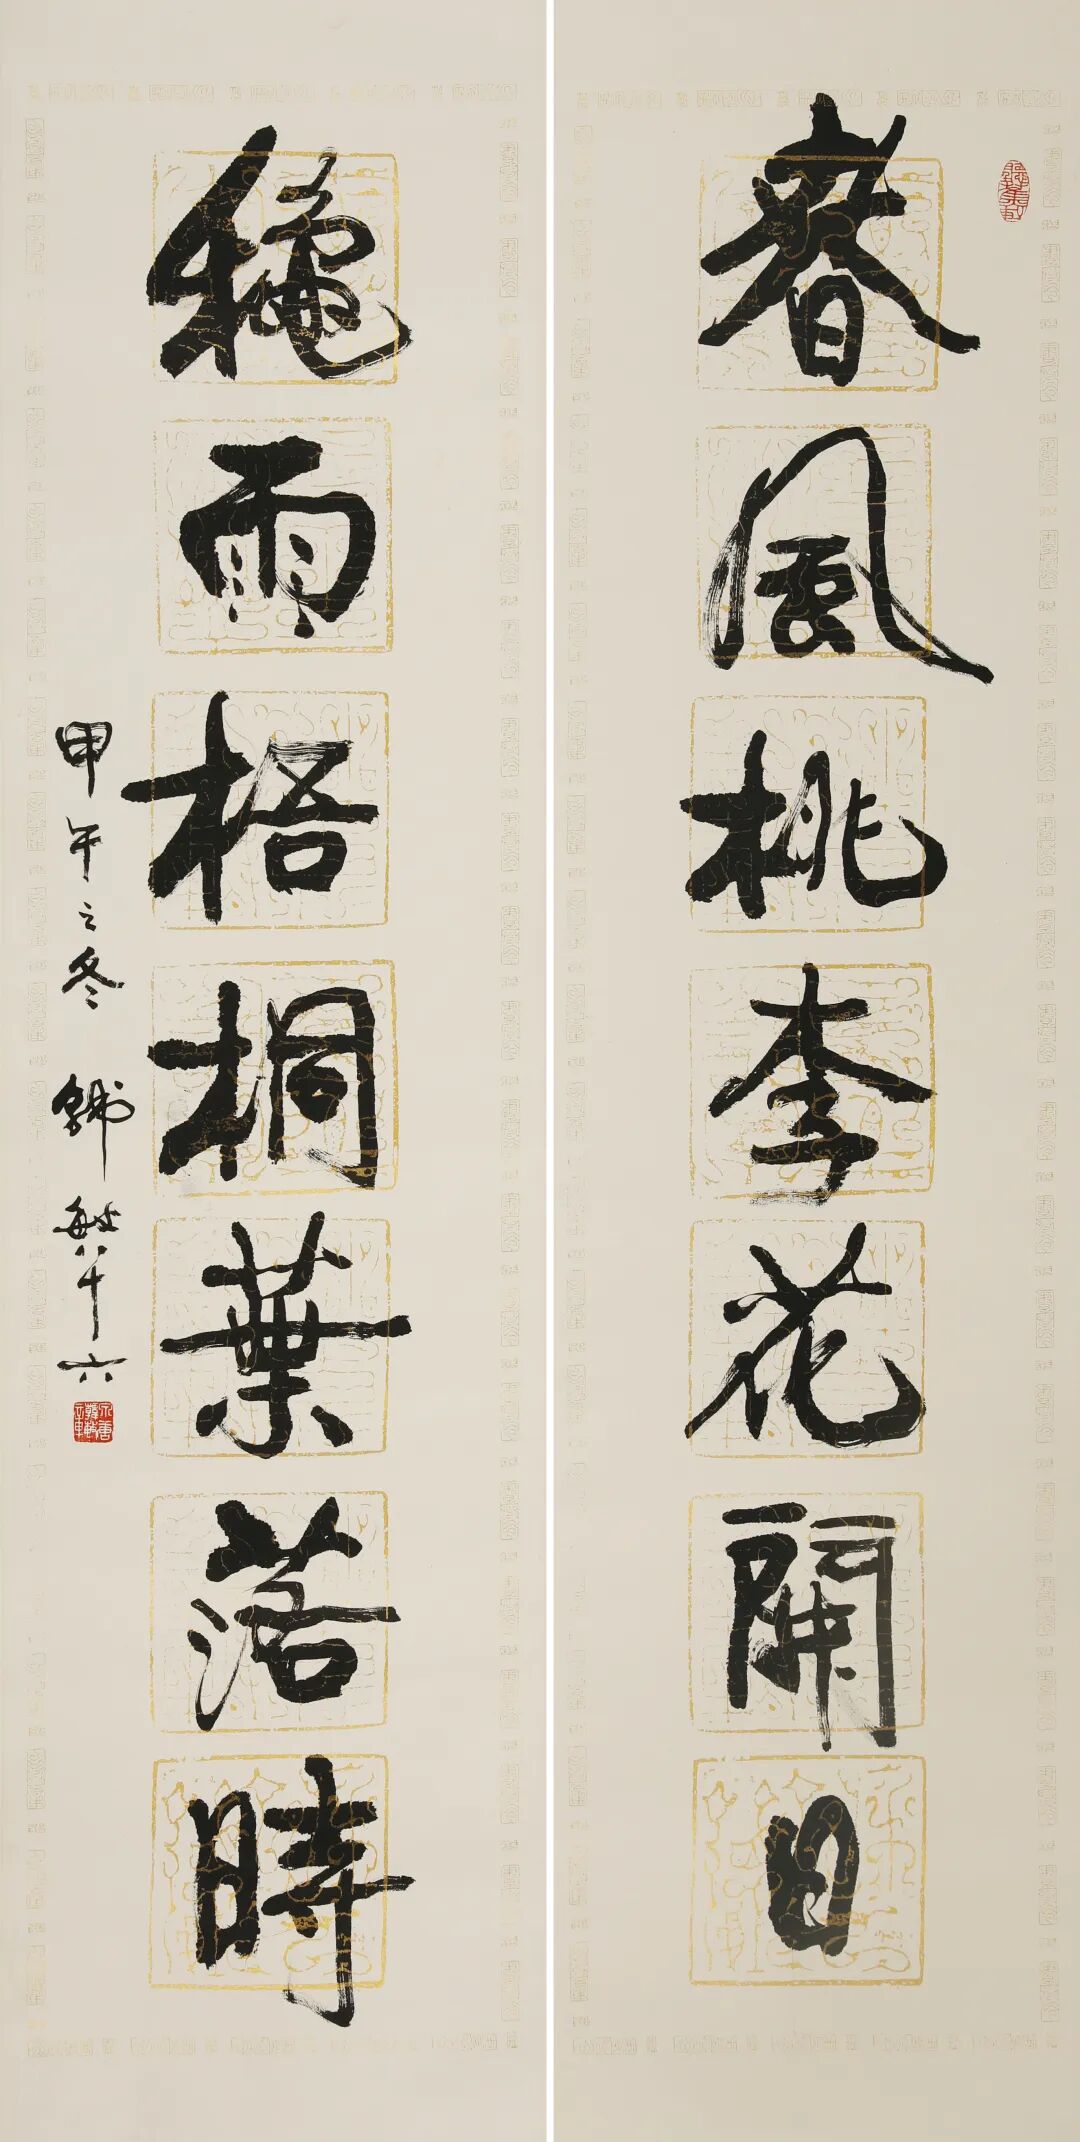 春風桃李花開日
穐雨梧桐葉落時
甲午之冬 韓敏八十六